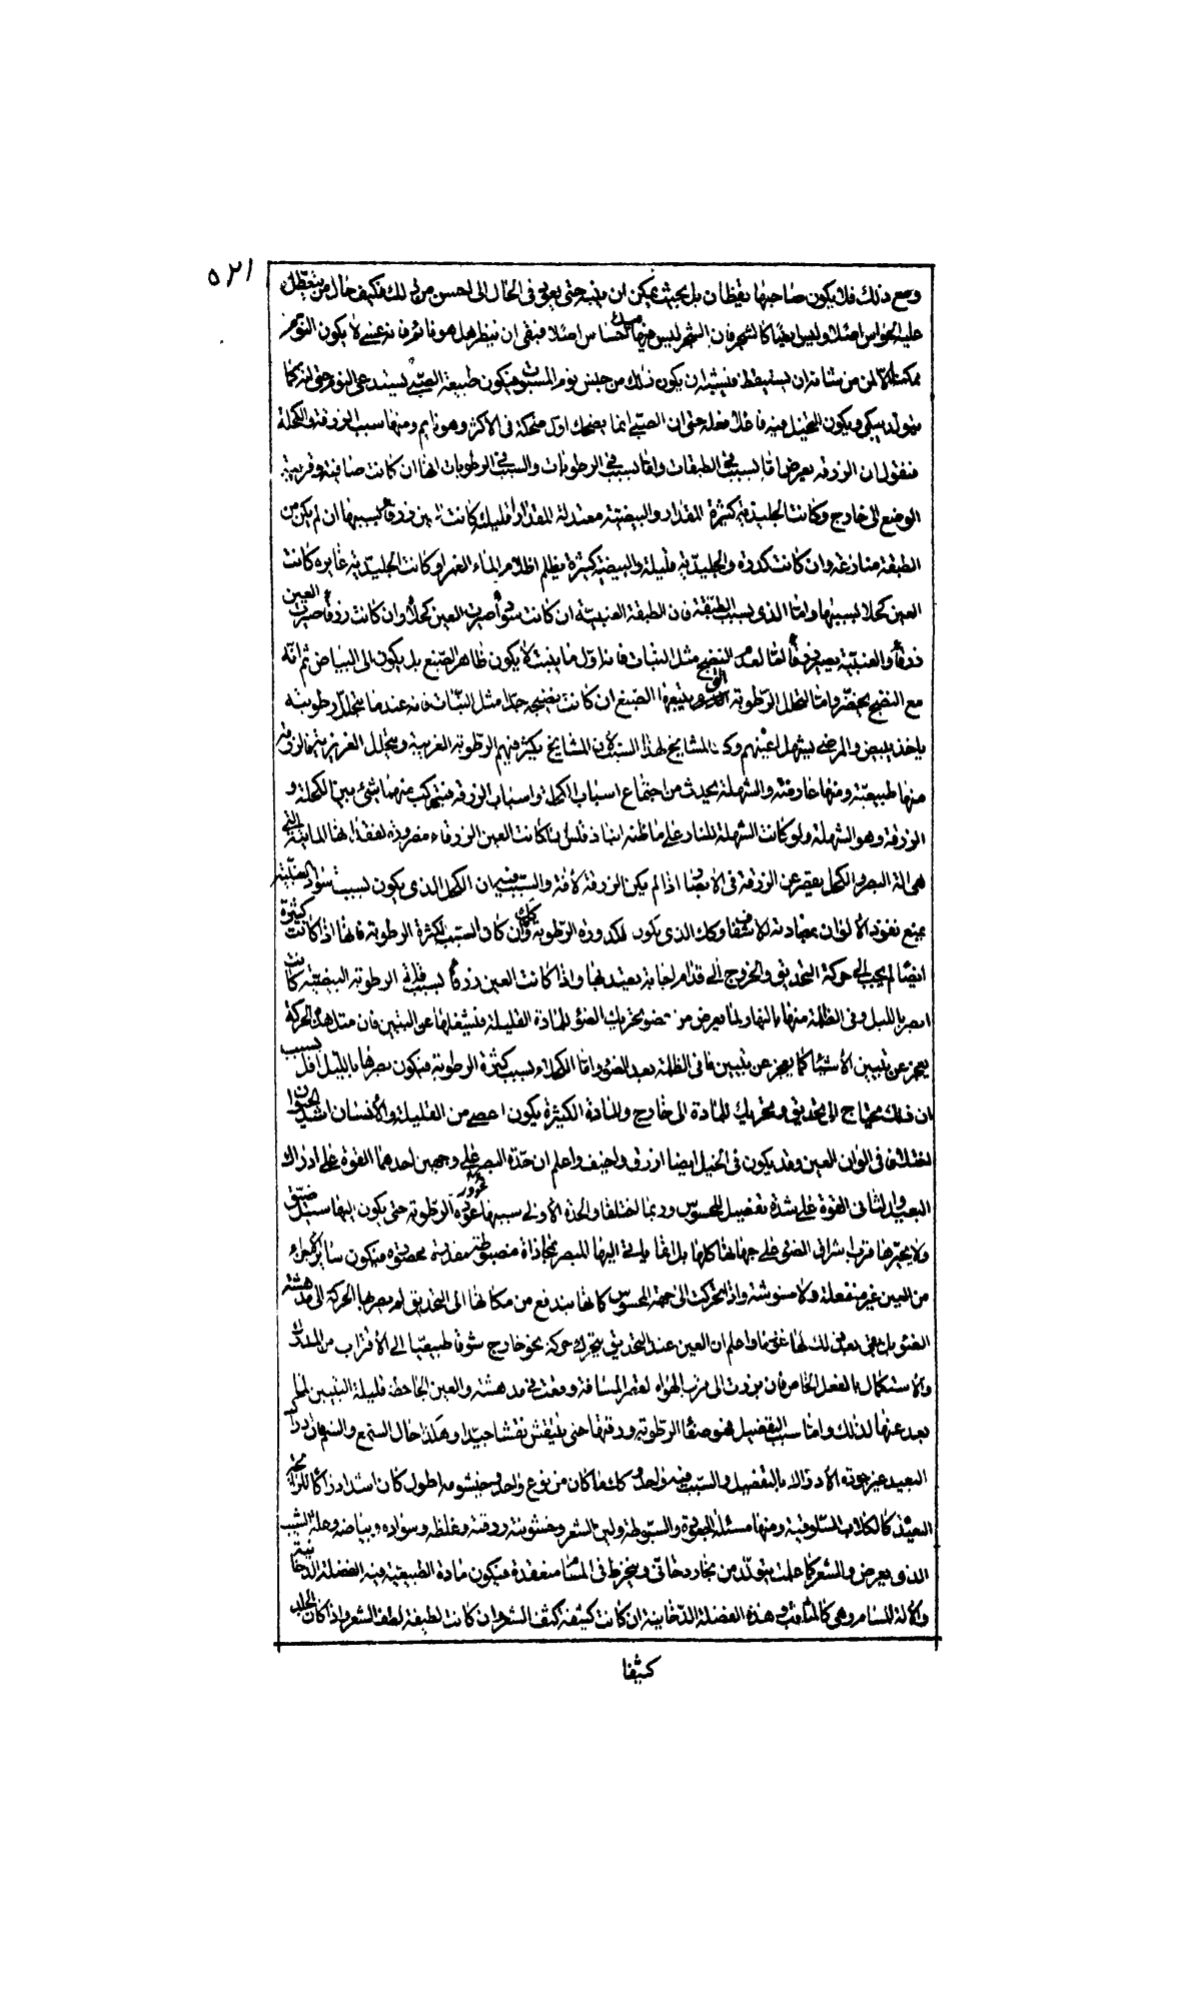 ٥٢١
ومع ذلك فلا يكون صاحبها يقظان بل بحيث يمكن ان ينبه حتى يعود فى الحال الى احسن من ذلك فكيف حال من يتعطل
عليه الحواس اصلا وليس ايضا كالشجر فان الشجر ليس فيها احساس اصلا فبقى ان ينظر هل هو نائم فانه عسى لا يكون النوم
ممكنا الا لمن من شانه ان يستيقظ فيشبه ان يكون ذلك من جنس نوم السبوت فيكون طبيعة الصبى يستدعى النوم حتى انه كما
يتولد يبكى ويكون التخيل فيه فاعلا فعله حتى ان الصبى انما يضحك اول ضحكه فى الاكثر وهو نايم ومنها سبب الزرقة والكحلة
فنقول ان الزرقة يعرض اما بسبب فى الطبقات واما بسبب فى الرطوبات والسبب فى الرطوبات انها ان كانت صافية وقريبة
الوضع الى خارج وكانت الجليدية كثيرة المقدار والبيضية معتدلة المقدار او قليلة كانت العين زرقاء بسببها ان لم يكن من
الطبقة منازعة وان كانت كدرة والجليدية قليلة والبيضية كثيرة يظلم اظلام الماء الغمر او كانت الجليدية غايرة كانت
العين كحلاء بسببها واما الذى بسبب الطبقة فان الطبقة العنبية ان كانت سوداء صيرت العين كحلاء وان كانت زرقاء صيرت العين
زرقاء والعنبية يصير زرقاء اما لعدم النضج مثل النبات فانه اول ما ينبت لا يكون ظاهر الصبغ بل يكون الى البياض ثم انه
مع النضج يخضر واما لتحلل الرطوبة التى يتبعها الصبغ ان كانت نضيجة جدا مثل النبات فانه عند ما يتحلل رطوبته
ياخذ يبيض والمرضى يشهل اعينهم وكذلك المشايخ لهذا السبب لان المشايخ يكثر فيهم الرطوبة الغريبة ويتحلل الغريزية فالزرقة
منها طبيعية ومنها عارضة والشهلة يحدث من اجتماع اسباب الكحل واسباب الزرقة فيتركب منهما شئ بين الكحلة و
الزرقة وهو الشهلة ولو كانت الشهلة للنار على ما ظنه انباذقلس لكانت العين الزرقاء مضرورة لفقدانها المائية التى
هى الة البصر والكحل يقصر عن الزرقة فى الابصار اذا لم يكن الزرقة لافة والسبب فيه ان الكحل الذى يكون بسبب سواد العنبية
يمنع نفوذ الالوان بمضادته للاشفاف وكذلك الذى يكون لكدورة الرطوبة وكذلك ان كان السبب كثرة الرطوبة فانها اذا كانت كثيرة
ايضا لم يجب الى حركة التحديق والخروج الى قدام اجابة يعتد بها واذا كانت العين زرقاء بسبب قلة الرطوبة البيضية كانت
ابصر بالليل وفى الظلمة منها بالنهار لما يعرض من تحريك الضوء للمادة القليلة فتشغلها عن التبين فان مثل هذه الحركة
يعجز عن تبيين الاشياء كما يعجز عن تبيين ما فى الظلمة بعد الضوء واما الكحلاء بسبب كثرة الرطوبة فيكون بصرها بالليل اقل بسبب
ان ذلك يحتاج الى تحديق وتحريك للمادة الى خارج والمادة الكثيرة يكون اعصى من القليلة والانسان اشد الحيوان
اختلافا فى الوان العين وقد يكون فى الخيل ايضا ازرق واخيف واعلم ان حدة البصر على وجهين احدهما القوة على ادراك
البعيد والثانى القوة على شدة تفصيل المحسوس وربما اختلفا والحدة الاولى سببها غؤور الرطوبة حتى يكون اليها سبيل ضيق
ولا يحيرها قرب اشراق الضوء على جهاتها كلها بل انما ياتى اليها المبصر بمحاذاة مضبوطة مقدرة محصورة فيكون سائر الاجزاء
من العين غير منفعلة ولا مشوشة واذا تحركت الى جهة المحسوس كانها يندفع من مكانها الى التحديق لم يصر بها الحركة الى مدهشة
الضوء بل بقى بعد ذلك لها غؤر ما واعلم ان العين عند التحديق يتحرك حركة نحو خارج شوقا طبيعيا الى الاقتراب من المدرك
والاستكمال بالفعل الخاص فان برزت الى قرب الهواء لقصر المسافة وقعت فى مدهشة والعين الجاحظة قليلة التبين لما
بعد عنها لذلك واما سبب التفصيل فهو صفاء الرطوبة ورقتها حتى يتنقش نقشا جيدا وهكذا حال السمع والشم فان ادراك
البعيد غير جودة الادراك بالتفصيل والسبب فيه واحد وكذلك ما كان من نوع واحد وخيشومه اطول كان اشد ادراكا للرائحة
البعيدة كالكلاب السلوقية ومنها مسئلة الجعودة والسبوطة ولين الشعر وخشونته ورقته وغلظه وسواده وبياضه وعلة الشيب
الذى يعرض والشعر كما علمت يتولد من بخار دخانى وينخرط فى المسام منعقدة فيكون مادة الطبيعية فيه الفضلة الدخانية
والالة المسام وهى كالمثاقب وهذه الفضلة الدخانية ان كانت كثيفة كثف الشعر وان كانت لطيفة لطف الشعر واذا كان الجلد
كثيفا